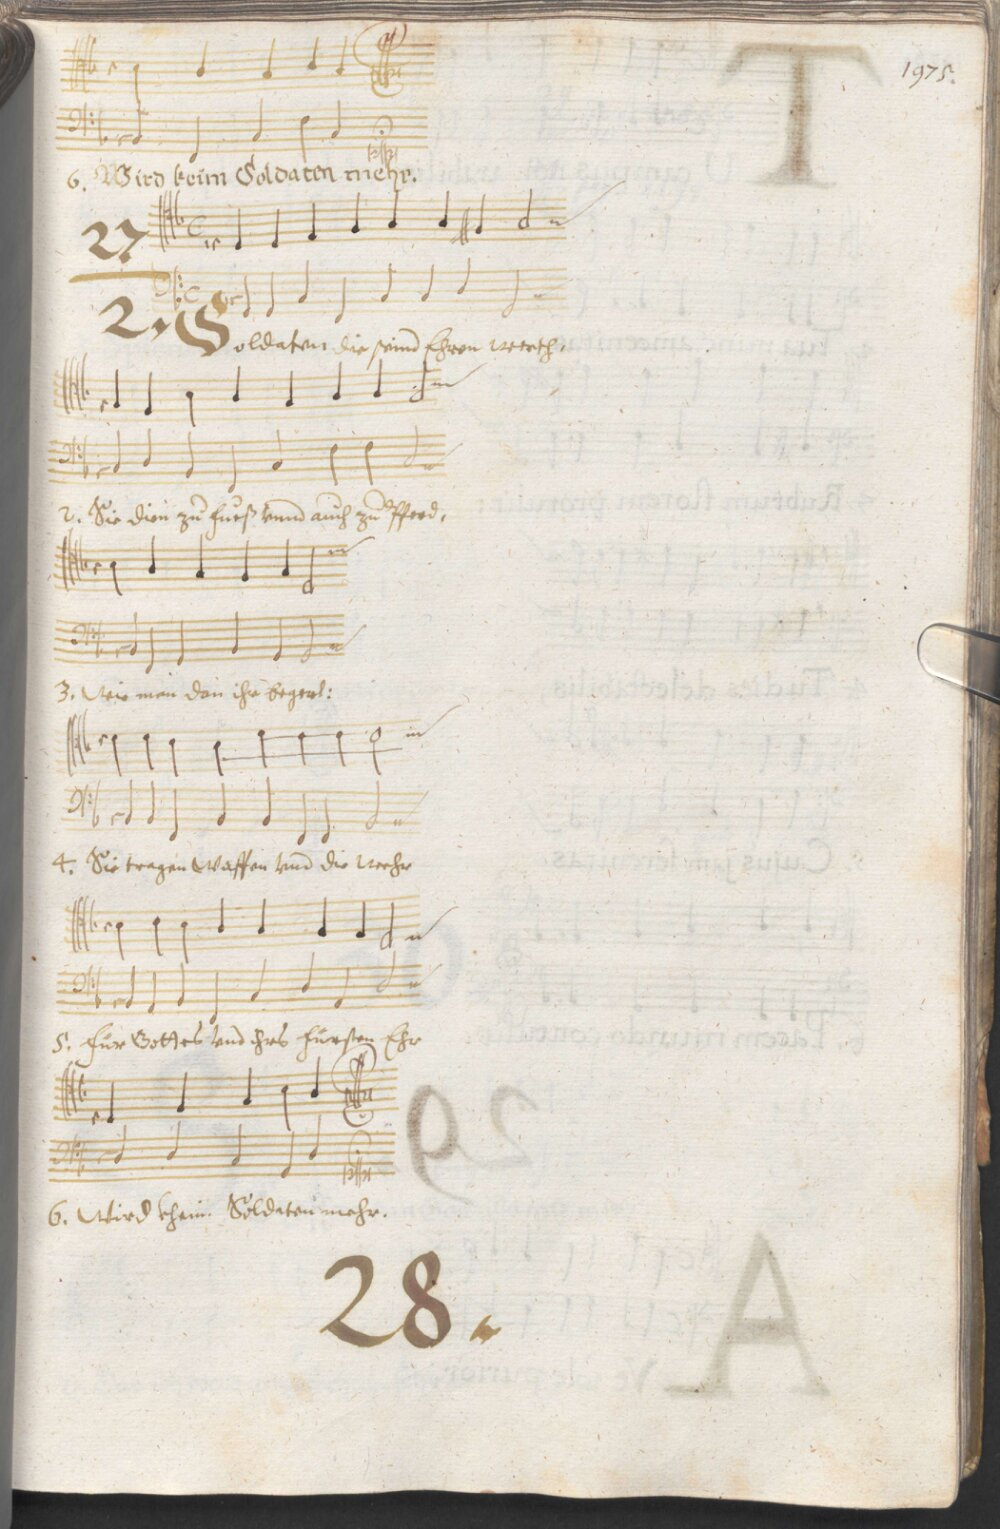 1975.
6. Wird keim Soldaten mehr.
27
2. Soldaten die seind Ehren werth.
2. Sie dien zu fueß vnnd auch zu Pferd.
3. Wie man dan ihr begert:
4. Sie tragen Waffen vnd die Wehr
5. Für Gottes vnd ihrs Fürsten Ehr
6. Wird kheim Soldaten mehr.
28.